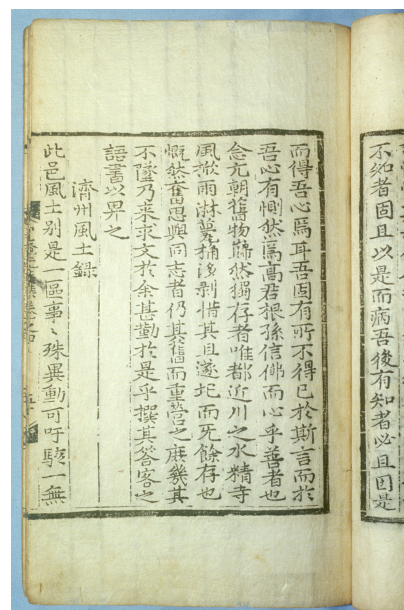 不知者固且以是而病吾後有知者必且因是
而得吾心焉耳吾固有所不得已於斯言而於
吾心有惻然焉高君根孫信佛而心乎善者也
念元朝舊物蕭然獨存者唯都近川之水精寺
風撼雨淋桷剝惜其且遂圮而无餘存也
慨然奮思與同志者仍其舊而重營之庶幾其
不墜乃来求文於余甚勤於是乎撰其答客之
語書以畀之
濟州風土錄
此邑風土別是一區事〻殊異動可吁駭一無